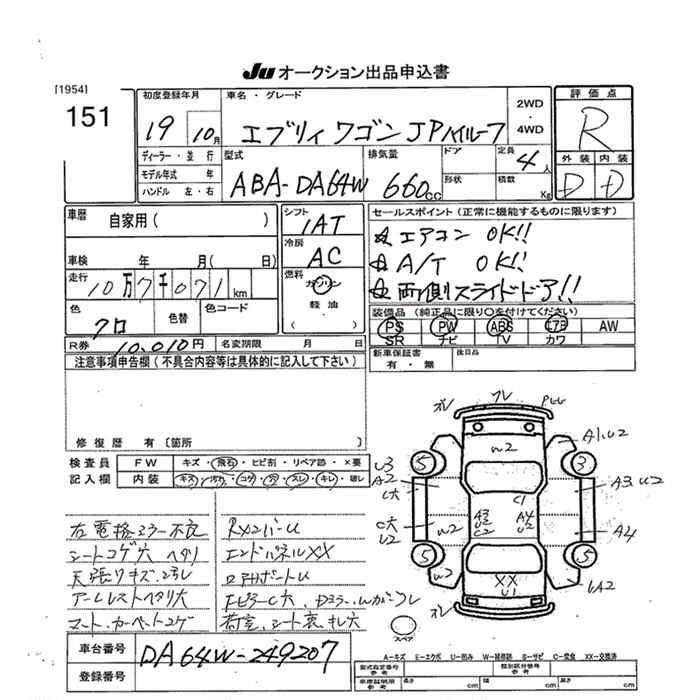 JU オークション出品申込書
[1954]
151
初度登録年月
19 10月
車名・グレード
エブリィ ワゴン JPハイルーフ
2WD
・
4WD
評価点
R
外装 内装
D D
ディーラー・並行
モデル年式 年
ハンドル 左・右
型式
ABA-DA64W
排気量
660cc
ドア
形状
定員
4人
積載
Kg
車歴
自家用( )
シフト
IAT
冷房
AC
セールスポイント(正常に機能するものに限ります)
☆ エアコン OK!!
☆ A/T OK!!
☆ 両側スライドドア!!
車検 年 月( 日)
走行
10万7千071km
燃料
ガソリン
・
軽油
( )
色
クロ
色替
色コード
装備品(純正品に限り○を付けてください)
PS PW ABS エアB AW
SR ナビ TV カワ
R券 10,010円 名変期限 月 日
新車保証書
有・無
後日品
注意事項申告欄(不具合内容等は具体的に記入して下さい)
修復歴 有〔箇所 〕
検査員
記入欄
FW キズ・飛石・ヒビ割・リペア跡・×要
内装 キズ・汚れ・コゲ・穴・スレ・キレ・破レ
右電格ミラー不良
シートコゲ穴 ヘタリ
天張りキズ.スレ
アームレストヘタリ大
マット.カーペットコゲ
RメンバーU
エンドパネルXX
ロアサポートU
荷室.シート裏.キレ穴
ズレ フレ Pセセ
W2
A1.U2
U3
A2
5 3
C大
C1
A3 U2
A3
U2
C2
A4
U2
C大
U2
W2
A4
5 5
W2
XX
U1
UA2
スペア
A-キズ E-エクボ U-凹み W-補修跡 S-サビ C-腐食 XX-交換済
車台番号
DA64W-249207
登録番号
型式指定番号
参考
類別区分番号
参考
車庫証明用
参考
長さ cm 幅 cm 高さ cm